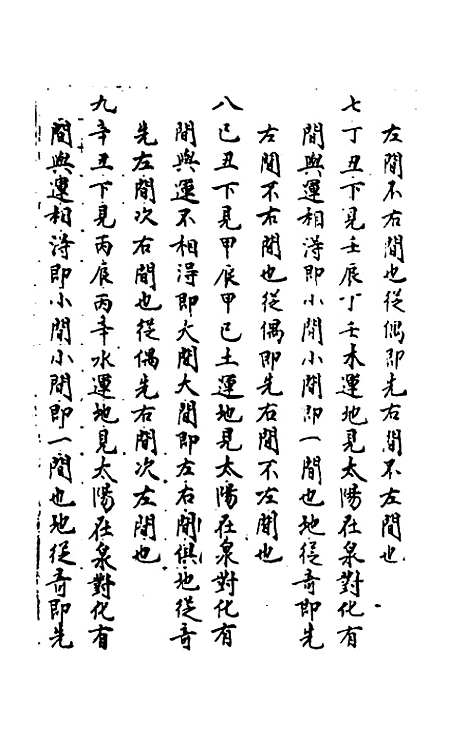 左間不右間也從偶即先右間不左間也
七丁丑下見壬辰丁壬木運地見太陽在泉對化有
間與運相淂即小間小間即一間也地從奇即先
左間不右間也從偶即先右間不左間也
八己丑下見甲辰甲己土運地見太陽在泉對化有
間與運不相淂即大間大間即左右間俱地從奇
先左間次右間也從偶先右間次左間也
九辛丑下見丙辰丙辛水運地見太陽在泉對化有
間與運相淂即小間小間即一間也地從奇即先